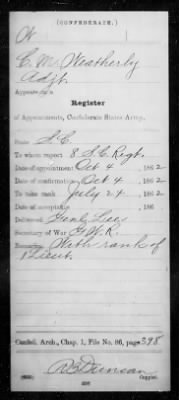 (CONFEDERATE.)
C. M. Weatherly
Adjt.
Appears on a
Register
of Appointments, Confederate States Army.
State S.C.
To whom report 8 S.C. Regt.
Date of appointment Oct 4, 1862
Date of confirmation Oct 4, 1862
To take rank July 24, 1862
Date of acceptance , 186
Delivered Genl Lees
Secretary of War G.W.R.
With rank of
1 Lieut.
Confed. Arch., Chap. 1, File No. 86, page 398
Duncan
Copyist.